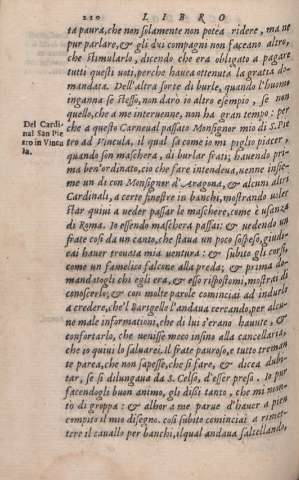 210 LIBRO
ta paura, che non solamente non potea ridere, ma ne
pur parlare, & gli dui compagni non faceano altro,
che stimularlo, dicendo che era obligato a pagare
tutti questi voti, perche hauea ottenuta la gratia do-
mandata. Dell'altra sorte di burle, quando l'huomo
inganna se stesso, non darò io altro esempio, se non
quello, che a me interuenne, non ha gran tempo: per
Del Cardi-
nal San Pie
tro in Vincu
la.
che a questo Carneual passato Monsignor mio di S. Pie
tro ad Vincula, il qual sa come io mi piglio piacer,
quando son maschera, di burlar frati; hauendo pri-
ma ben'ordinato, ciò che fare intendeua, uenne insie-
me un dì con Monsignor d'Aragona, & alcuni altri
Cardinali, a certe finestre in banchi, mostrando uoler
star quiui a ueder passar le maschere, come è usanza
di Roma. Io essendo maschera passai: & uedendo un
frate così da un canto, che staua un poco sospeso, giudi-
cai hauer trouata mia uentura: & subito gli corsi,
come un famelico falcone alla preda; & prima do-
mandatogli chi egli era, & esso rispostomi, mostrai di
conoscerlo; & con molte parole cominciai ad indurlo
a credere, che'l Bargelle l'andaua cercando, per alcu-
ne male informationi, che di lui s'erano hauute, &
confortarlo, che uenisse meco insino alla cancellaria,
che io quiui lo saluarei. Il frate pauroso, e tutto treman
te parea, che non sapesse, che si fare, & dicea dubi-
tar, se si dilungaua da S. Celso, d'esser preso. Io pur
facendogli buon animo, gli dissi tanto, che mi mon-
tò di groppa: & alhor a me parue d'hauer a pien
compito il mio disegno. così subito cominciai a rimet-
tere il cauallo per banchi, il qual andaua saltellando,